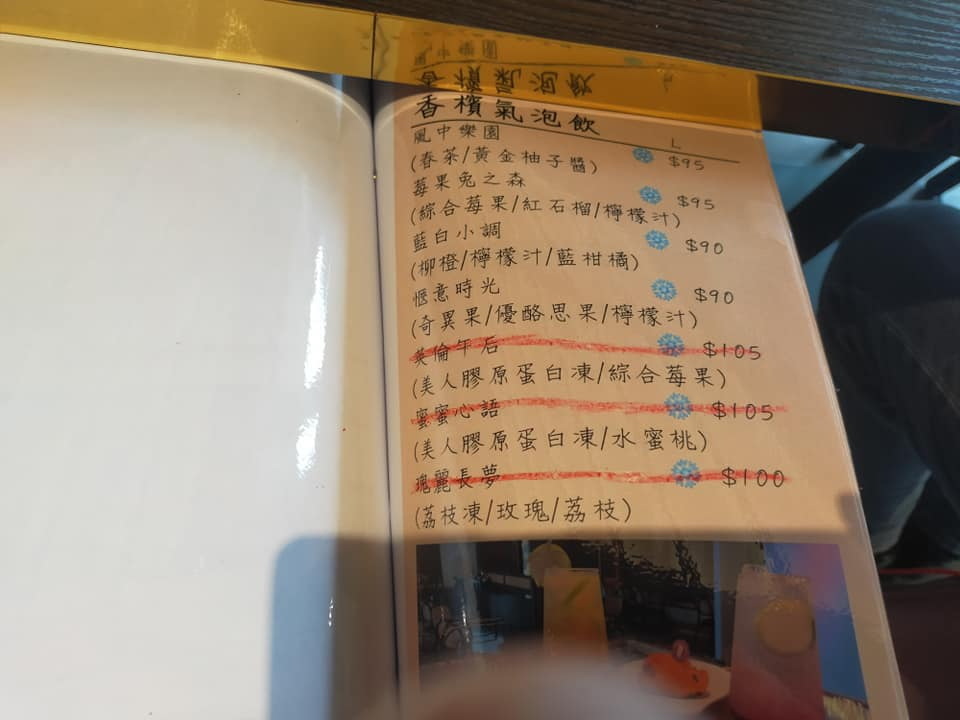 香檳氣泡飲
L
風中樂園 $95
(春茶/黃金柚子醬)
莓果兔之森 $95
(綜合莓果/紅石榴/檸檬汁)
藍白小調 $90
(柳橙/檸檬汁/藍柑橘)
愜意時光 $90
(奇異果/優酪思果/檸檬汁)
英倫午后 $105
(美人膠原蛋白凍/綜合莓果)
蜜蜜心語 $105
(美人膠原蛋白凍/水蜜桃)
瑰麗長夢 $100
(荔枝凍/玫瑰/荔枝)